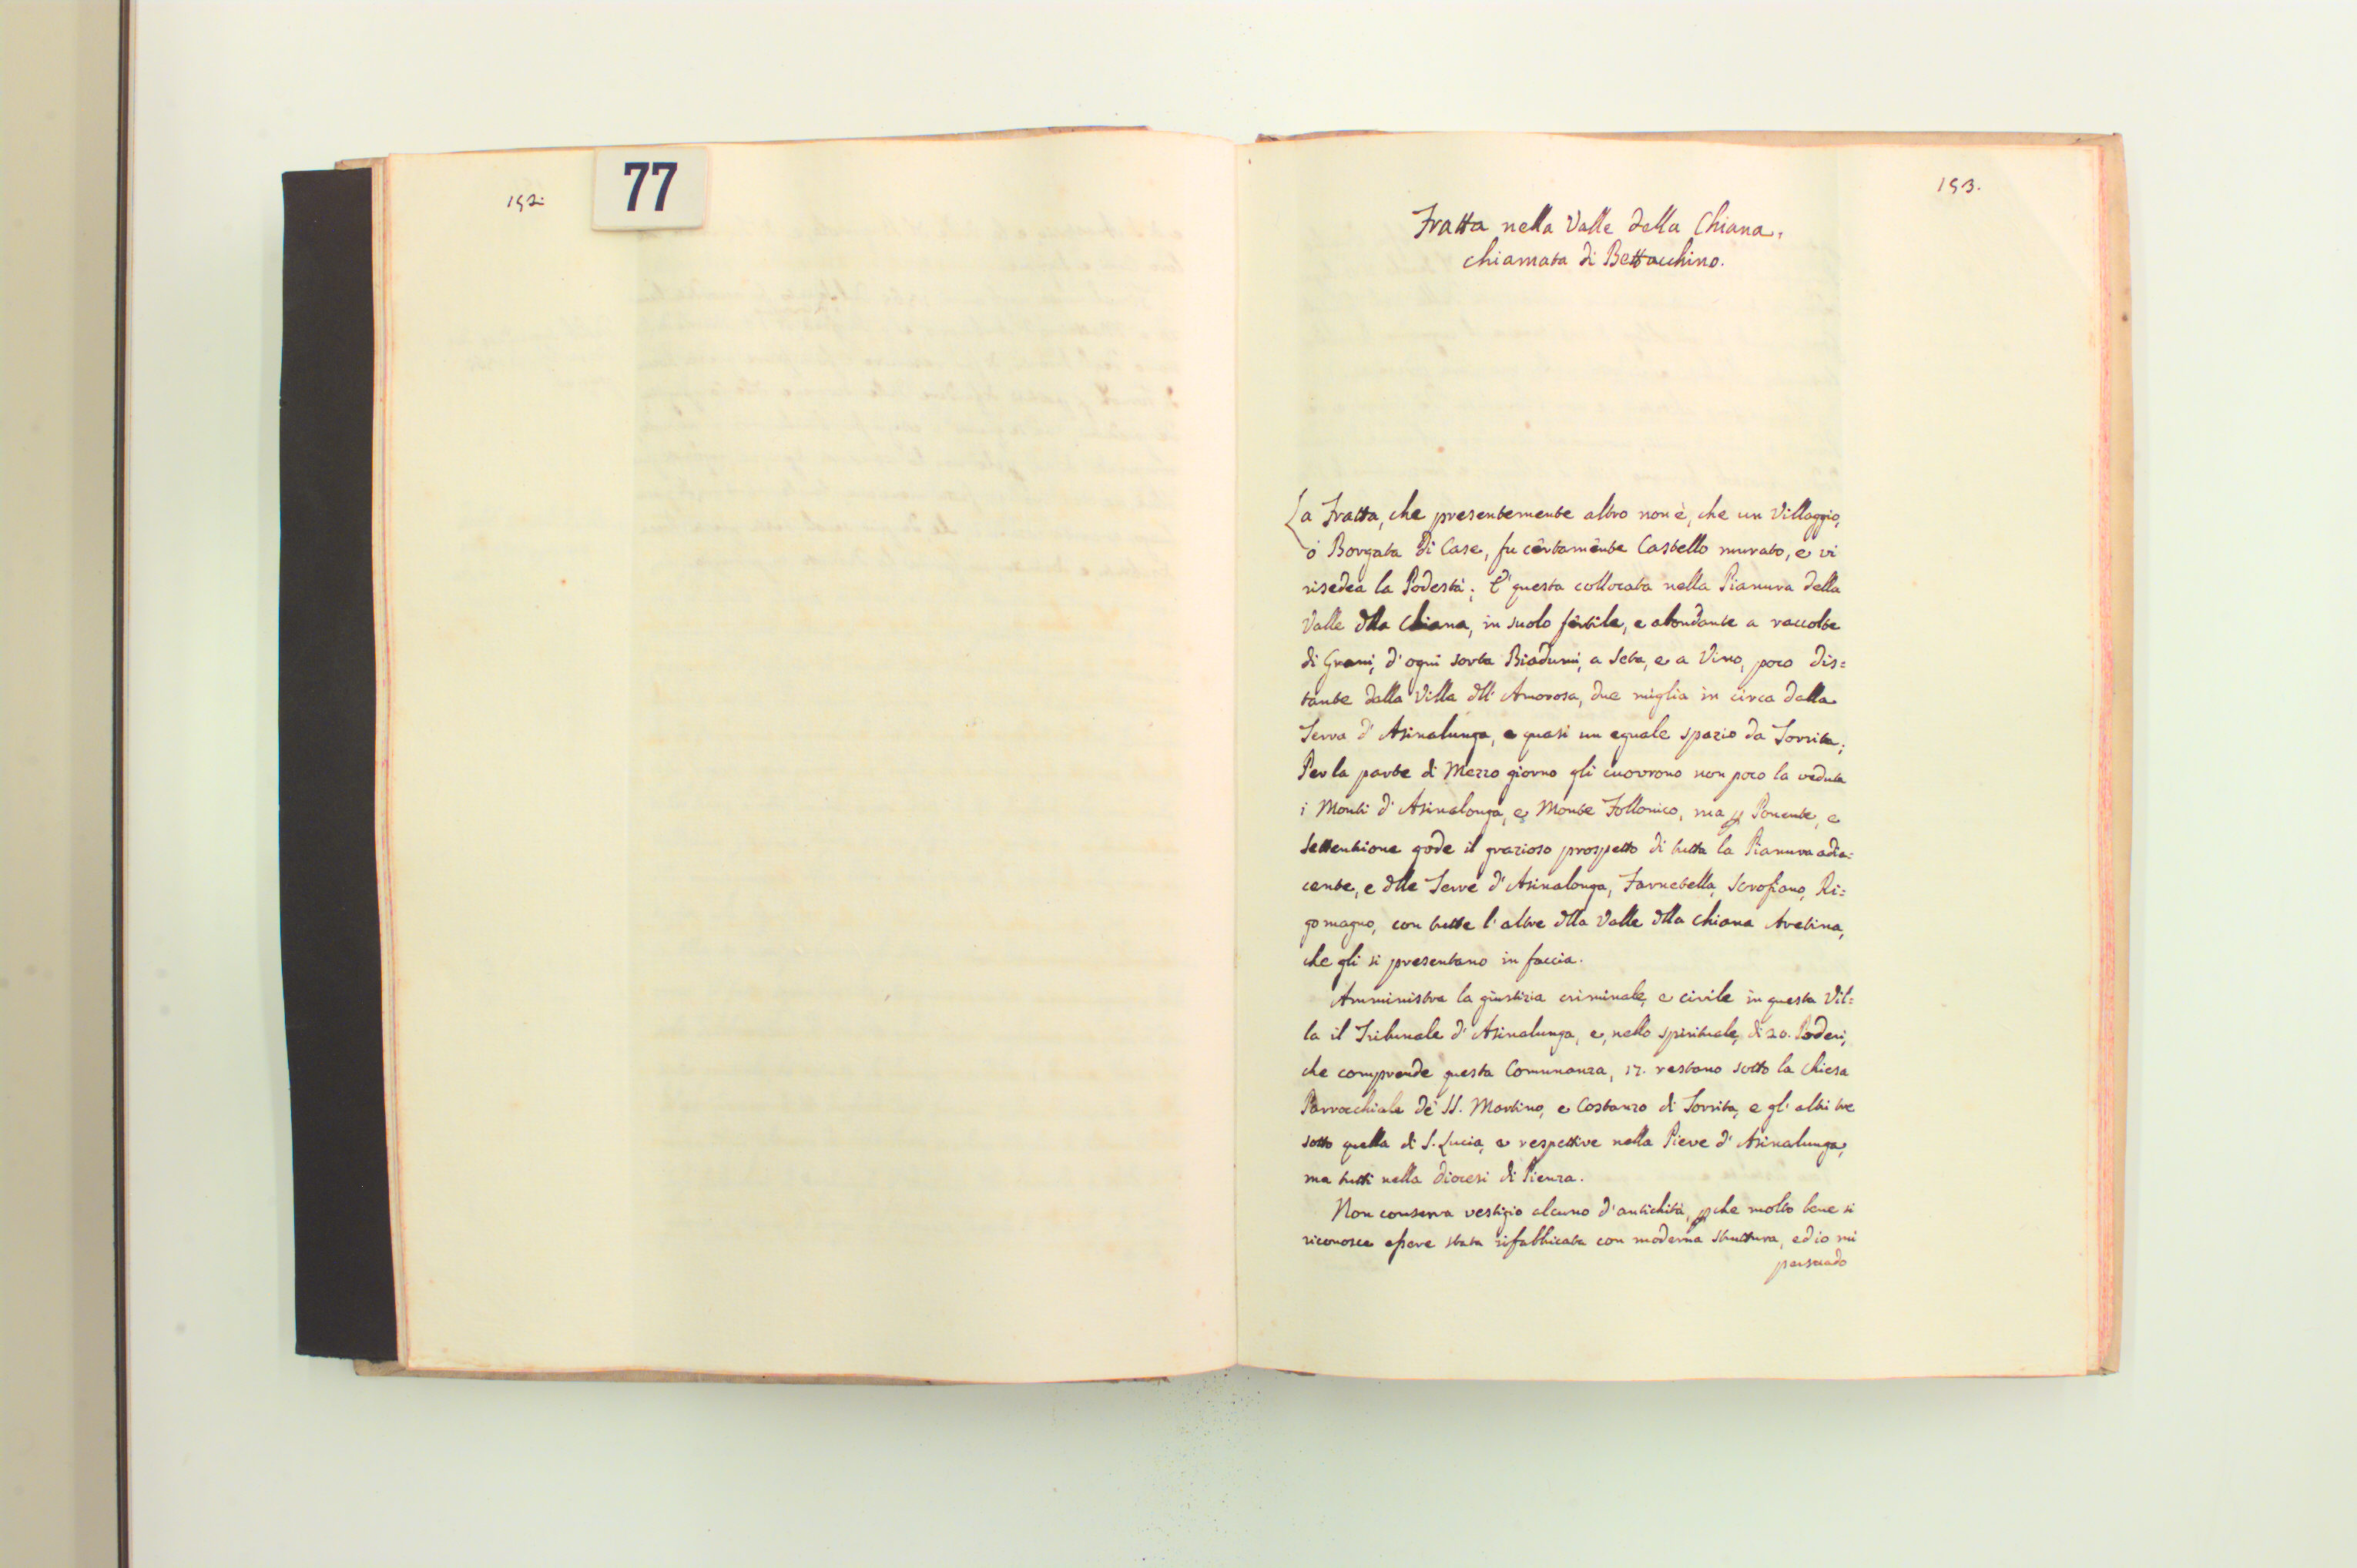 192.
77
193.
Fratta nella Valle della Chiana,
chiamata di Bettacchino.
La Fratta, che presentemente altro non è, che un Villaggio,
ò Borgata di Case, fu certamente Castello murato, e vi
risedea la Podestà; E' questa collocata nella Pianura della
Valle dlla Chiana, in suolo fertile, e abondante a raccolte
di Grani, d'ogni sorta Biadumi, a Seta, e a Vino, poco dis=
tante dalla Villa dll'Amorosa, due miglia in circa dalla
Terra d'Asinalunga, e quasi un eguale spazio da Torrita;
Per la parte di Mezzo giorno gli cuovrono non poco la veduta
i Monti d'Asinalonga, e Monte Follonico, ma p Ponente, e
Settentrione gode il grazioso prospetto di tutta la Pianura adia=
cente, e dlle Terre d'Asinalonga, Farnetella, Scrofiano, Ri=
gomagno, con tutte l'altre dlla Valle dlla Chiana Aretina,
che gli si presentano in faccia.
Amministra la giustizia criminale, e civile in questa Vil=
la il Tribunale d'Asinalunga, e, nello spirituale, di 20. Poderi,
che comprende questa Comunanza, 17. restano sotto la Chiesa
Parrocchiale de' SS. Martino, e Costanzo di Torrita, e gl'altri tre
sotto quella di S. Lucia, e respettive nella Pieve d'Asinalunga,
ma tutti nella Diocesi di Pienza.
Non conserva vestigio alcuno d'antichità, pche molto bene si
riconosce essere stata rifabbricata con moderna struttura, ed io mi
persuado